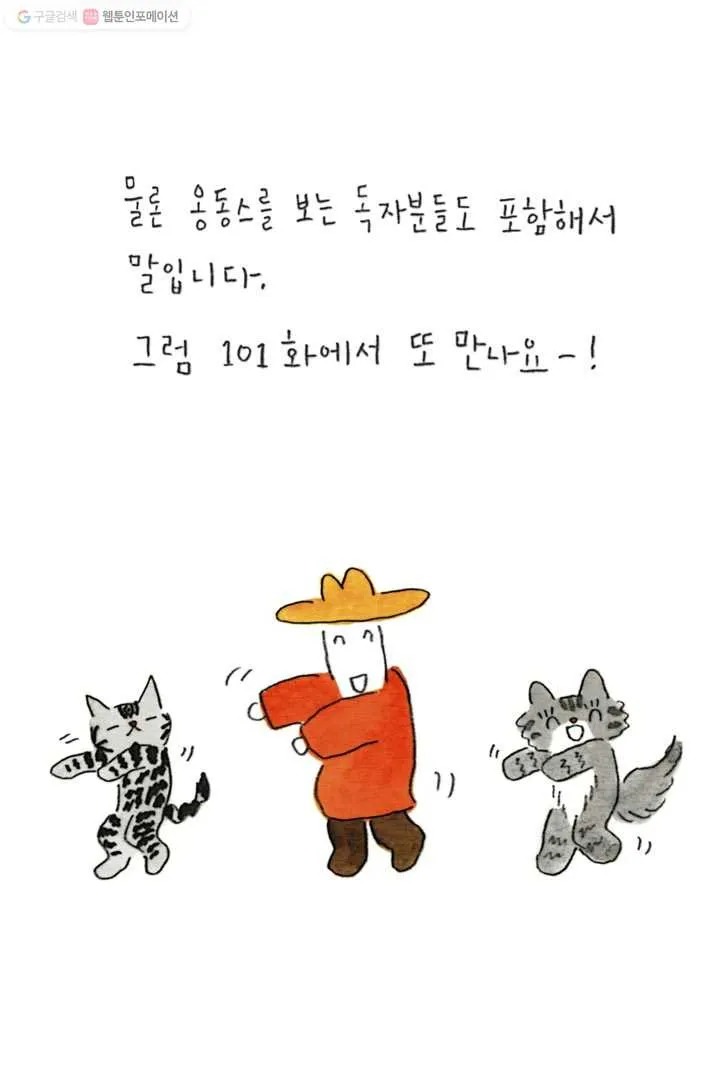 구글검색 웹툰인포메이션
물론 웅동스를 보는 독자분들도 포함해서
말입니다.
그럼 101화에서 또 만나요~!